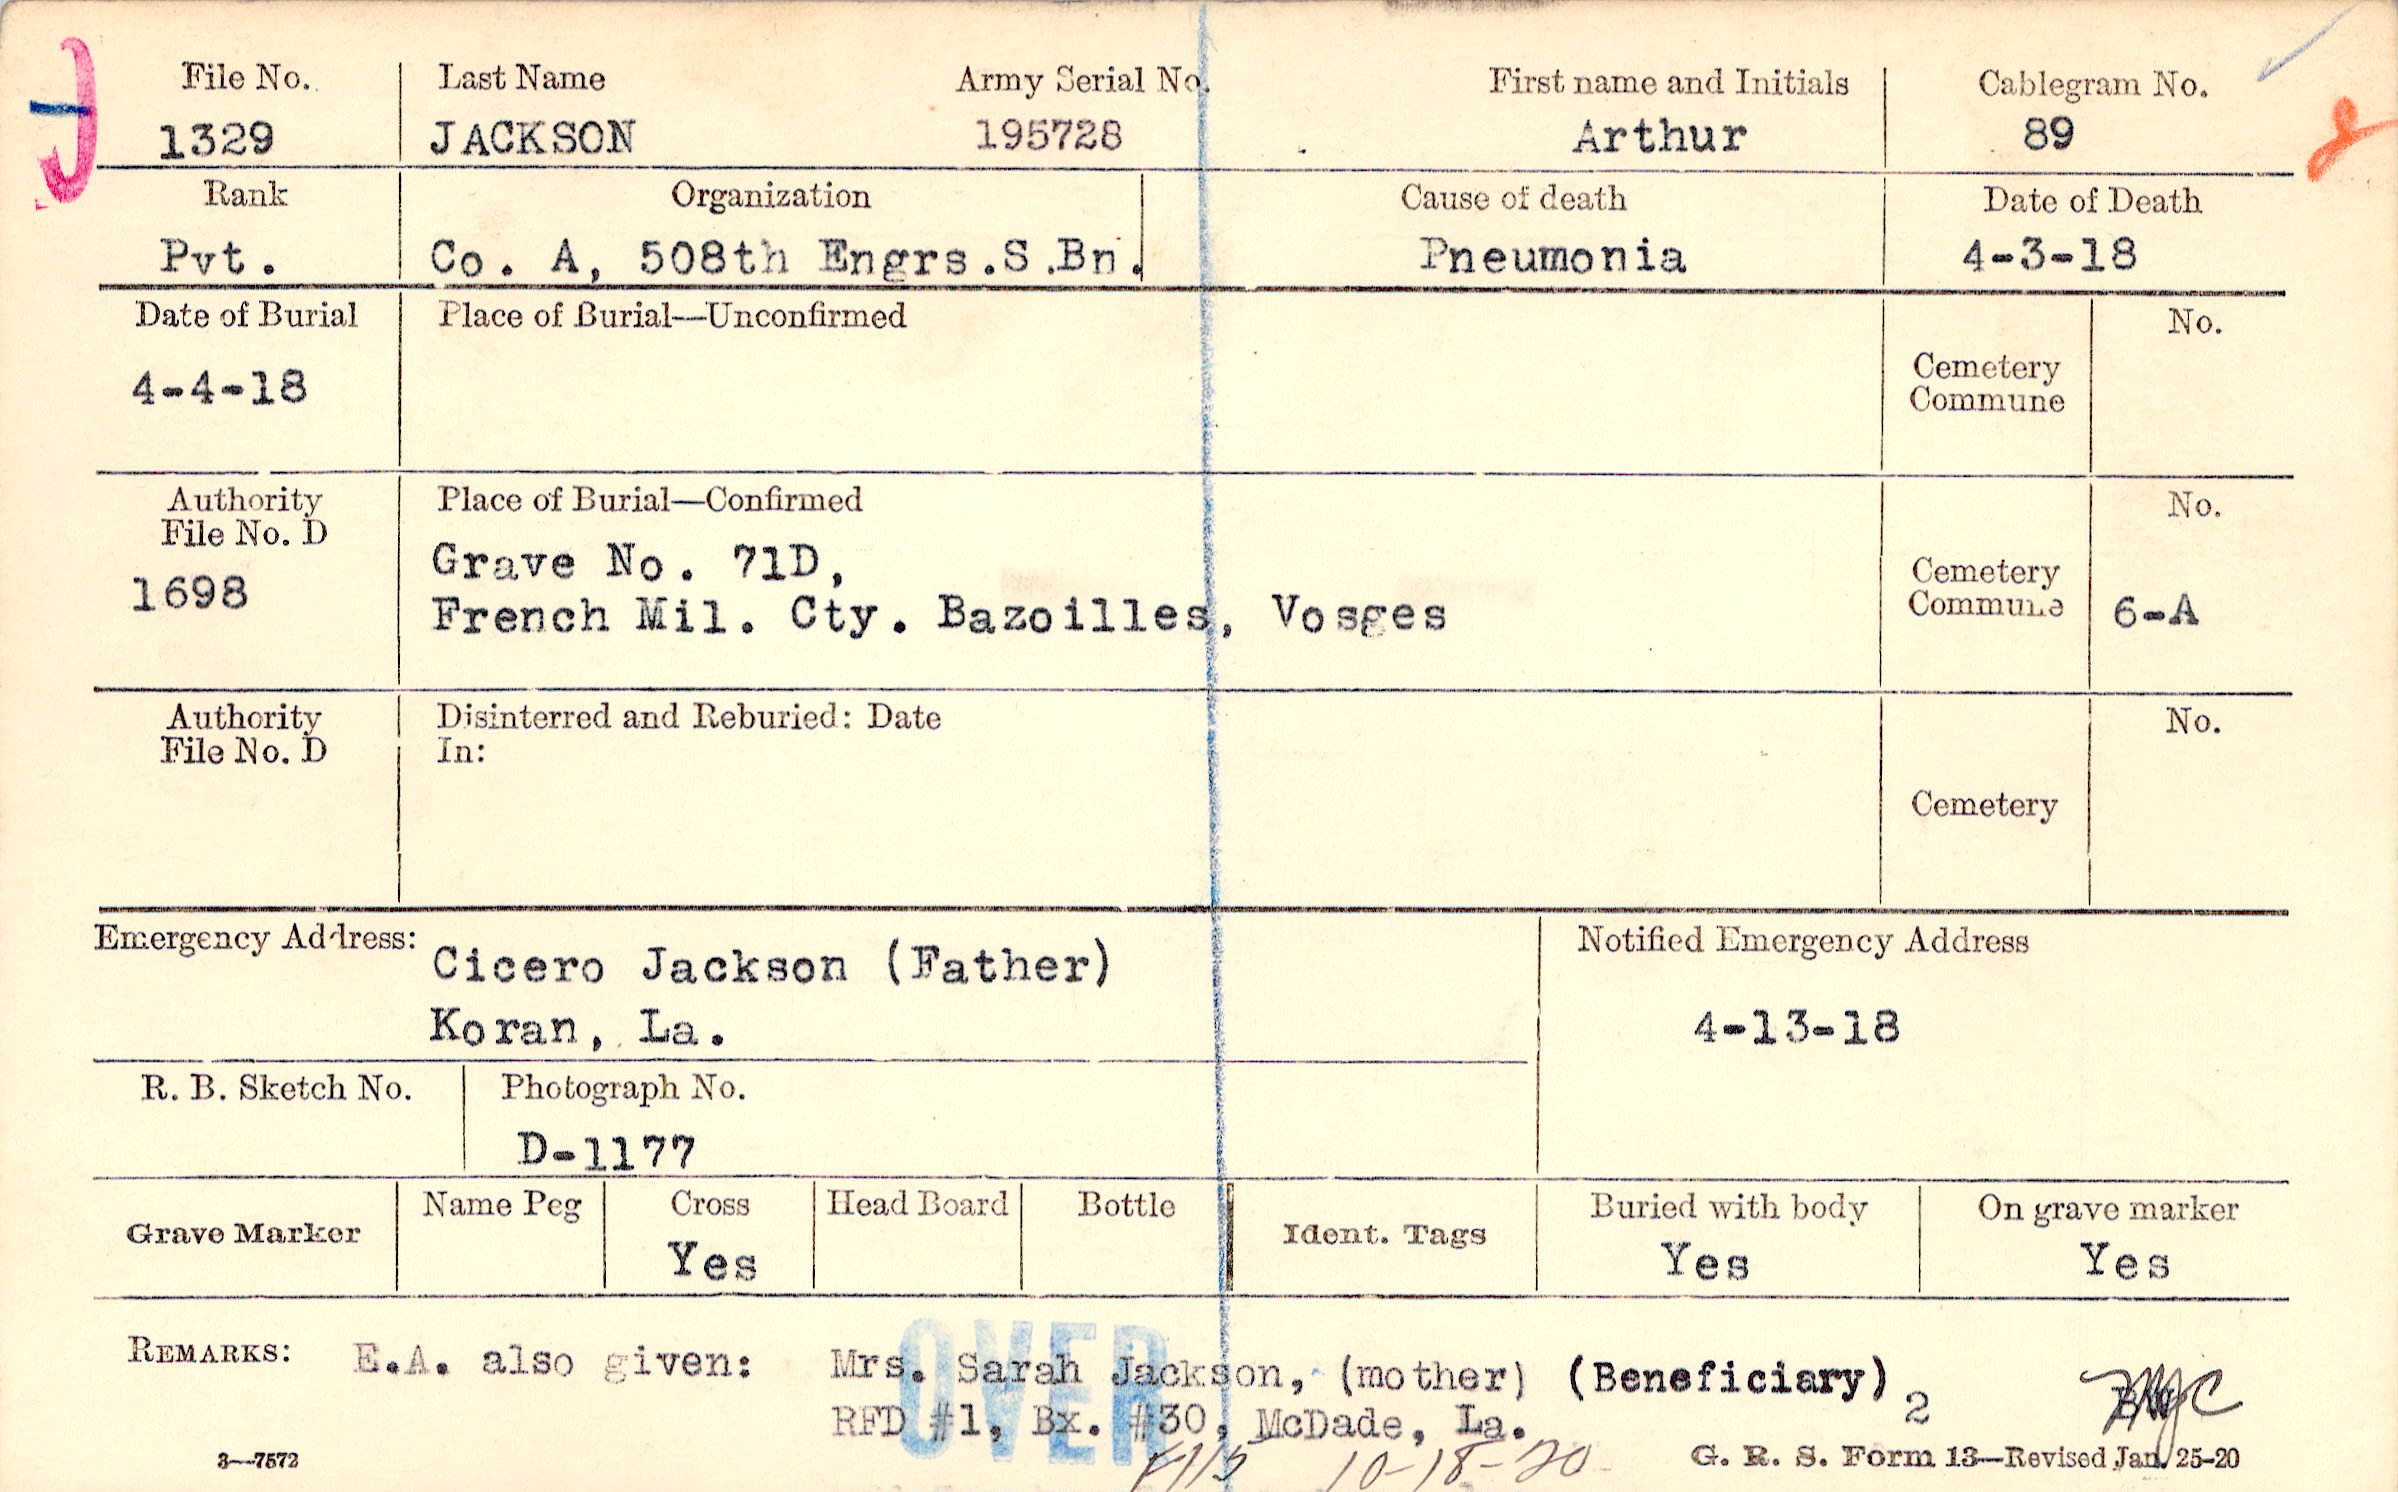 J
File No. Last Name Army Serial No. First name and Initials Cablegram No.
1329 JACKSON 195728 Arthur 89
Rank Organization Cause of death Date of Death
Pvt. Co. A, 508th Engrs.S.Bn. Pneumonia 4-3-18
Date of Burial Place of Burial—Unconfirmed No.
4-4-18
Cemetery
Commune
Authority Place of Burial—Confirmed No.
File No. D
1698
Grave No. 71D,
French Mil. Cty. Bazoilles, Vosges
Cemetery
Commune
6-A
Authority Disinterred and Reburied: Date No.
File No. D In:
Cemetery
Emergency Address: Cicero Jackson (Father)
Koran, La.
Notified Emergency Address
4-13-18
R. B. Sketch No. Photograph No.
D-1177
Grave Marker Name Peg Cross Head Board Bottle Ident. Tags Buried with body On grave marker
Yes Yes Yes
REMARKS: E.A. also given: Mrs. Sarah Jackson, (mother) (Beneficiary)
RFD #1, Bx. #30, McDade, La. 2
OVER
10-18-20
3—7572 G. R. S. Form 13—Revised Jan. 25-20